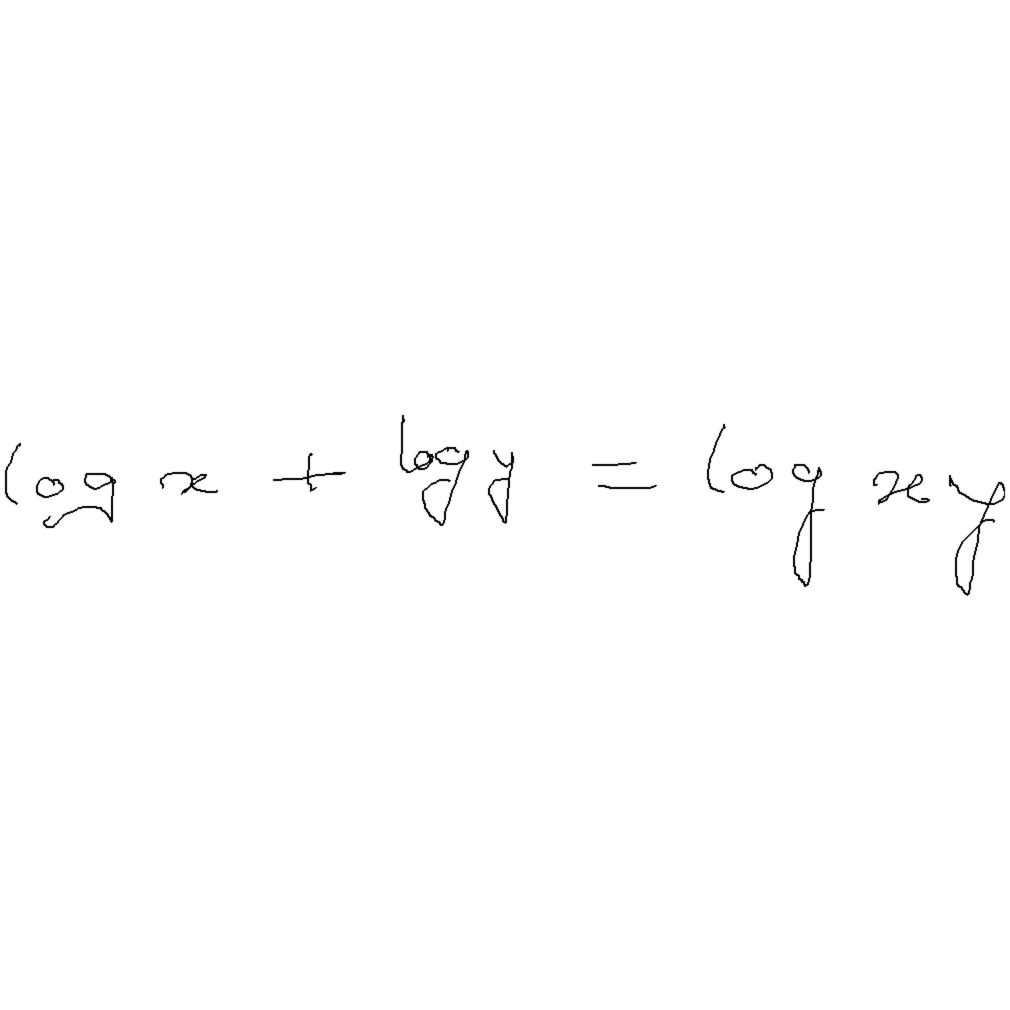 log x + log y = log xy